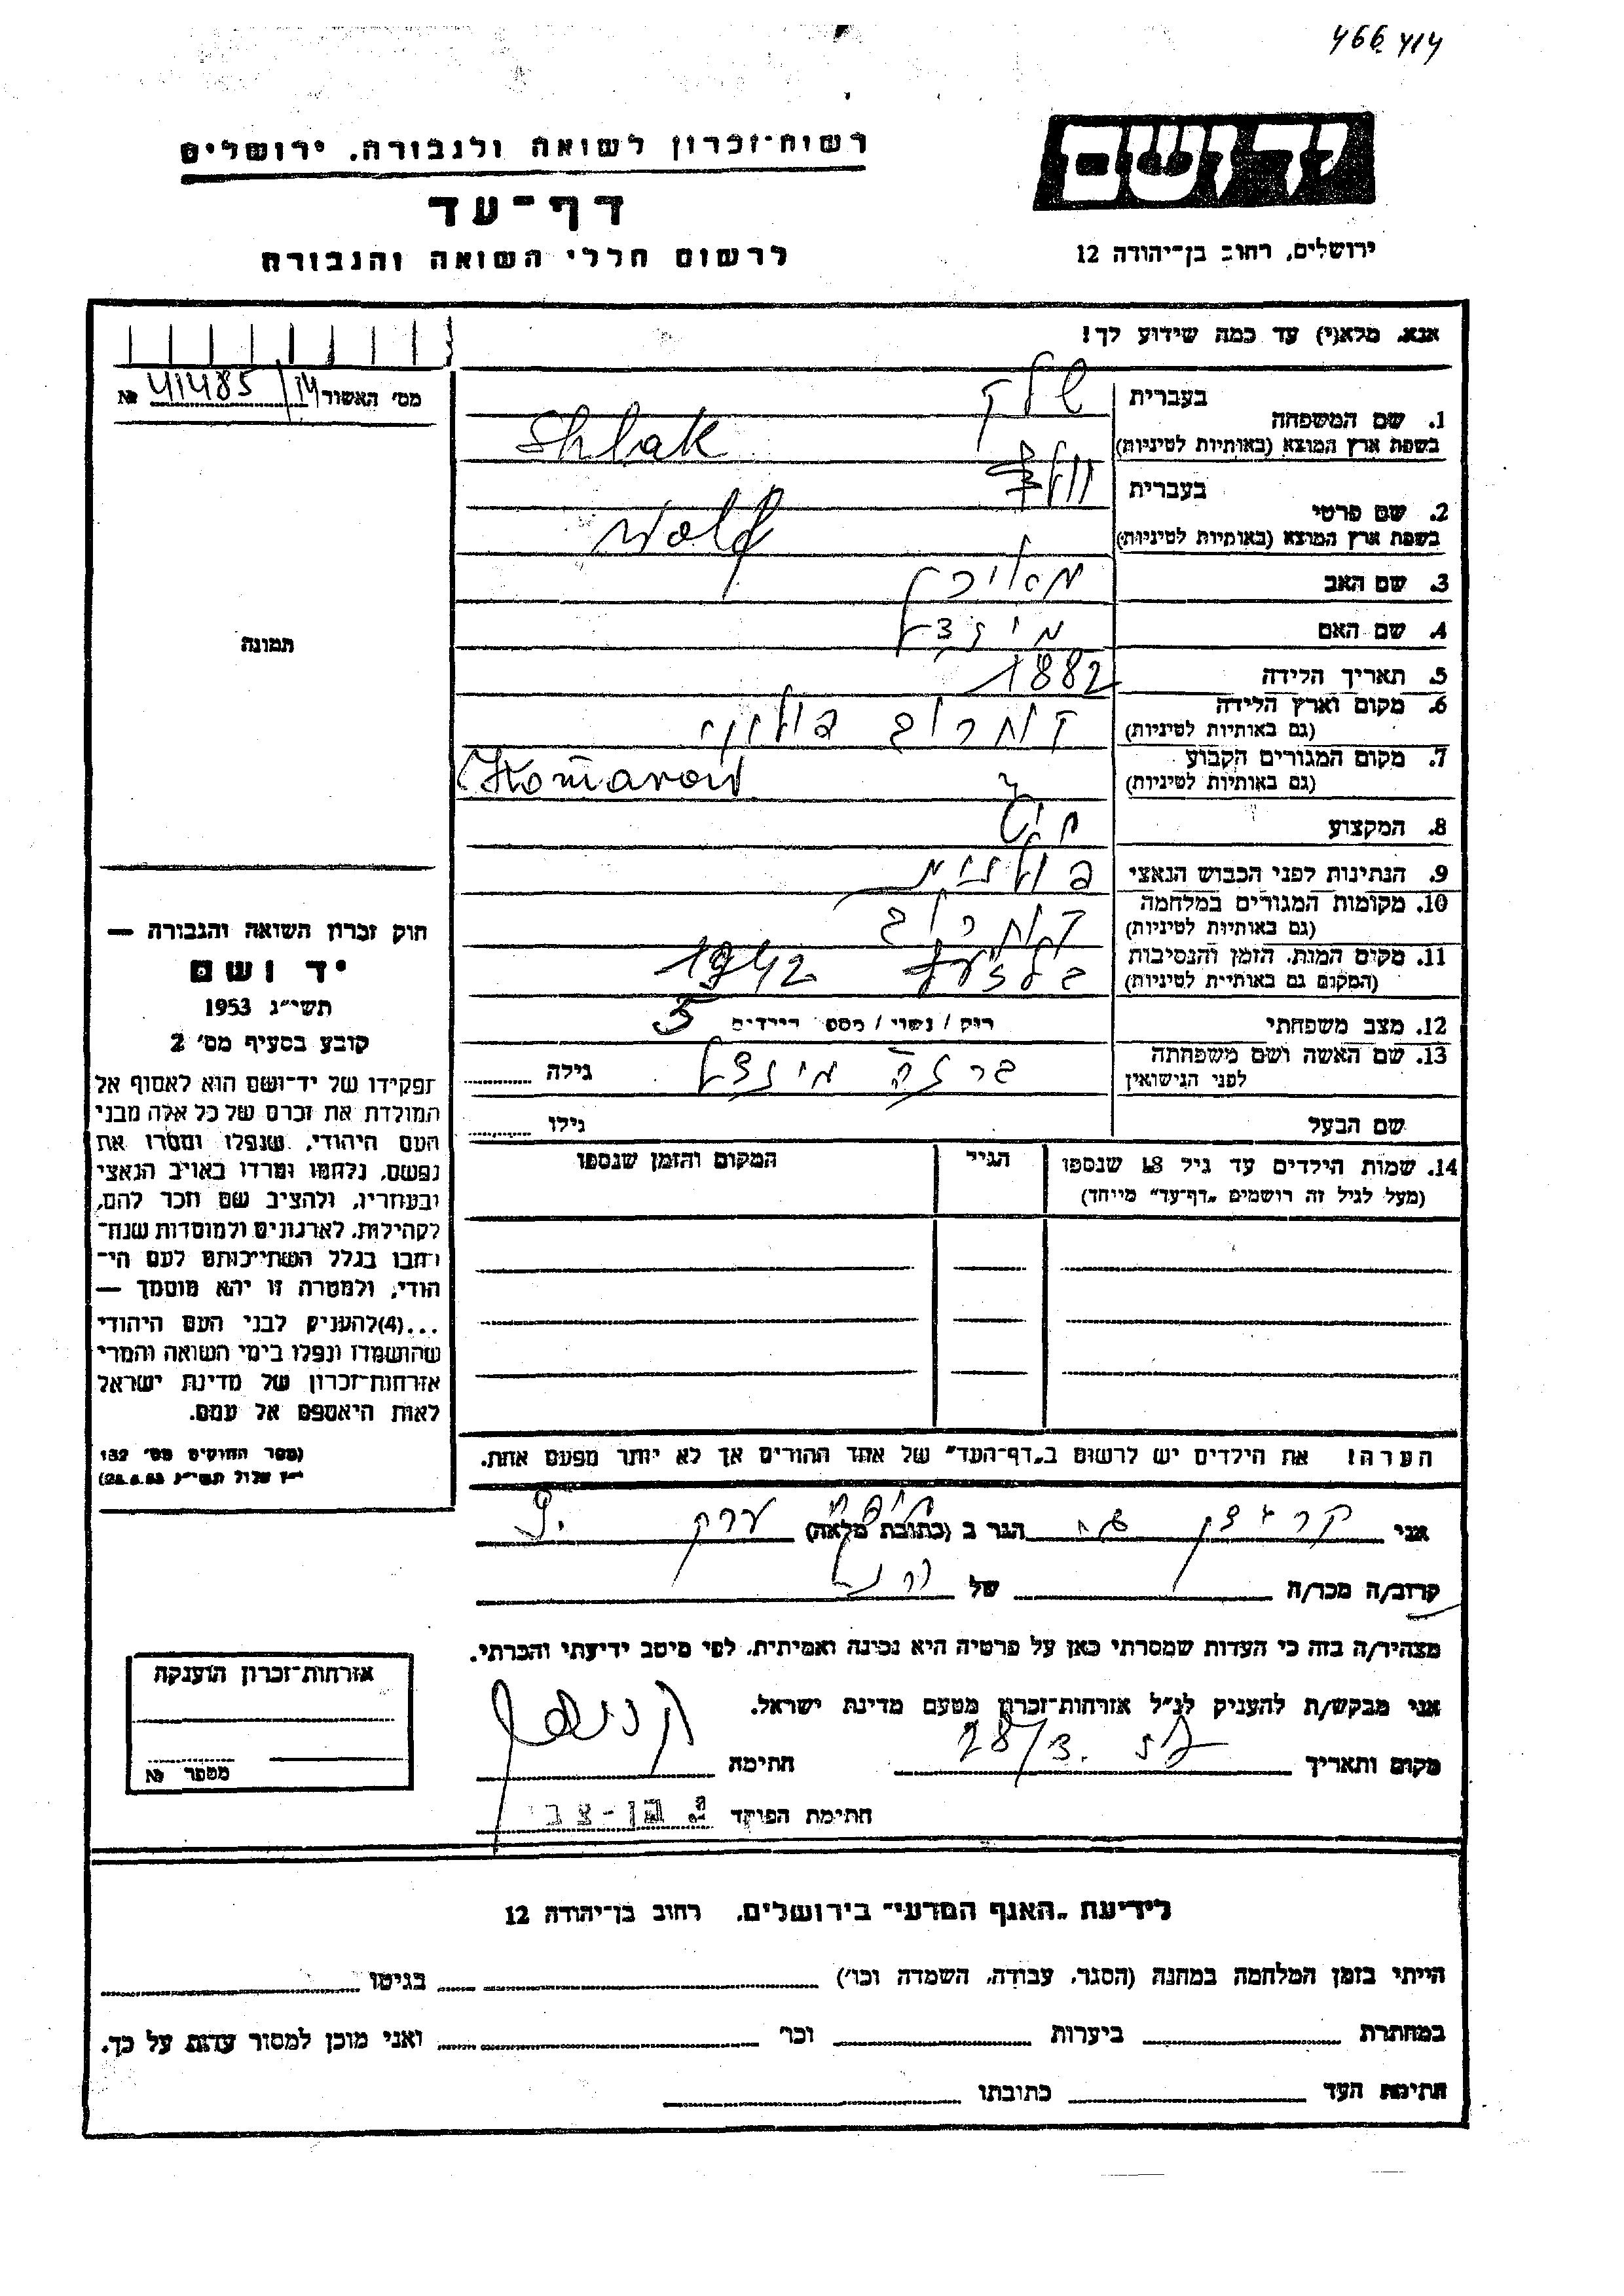 466 414
יד ושם
רשות־זכרון לשואה ולגבורה. ירושלים
דף־עד
לרשום חללי השואה והגבורה
ירושלים, רחוב בן־יהודה 12
אנא, מלא(י) עד כמה שידוע לך!
מס׳ האשור 41485/14 №
1. שם המשפחה
בעברית שלק
בשפת ארץ המוצא (באותיות לטיניות) Shlak
2. שם פרטי
בעברית וולף
בשפת ארץ המוצא (באותיות לטיניות) Wolf
3. שם האב
4. שם האם מינדל
5. תאריך הלידה 1882
6. מקום וארץ הלידה קמרוב פולין
(גם באותיות לטיניות)
7. מקום המגורים הקבוע Komarow
(גם באותיות לטיניות)
8. המקצוע חיט
9. הנתינות לפני הכבוש הנאצי פולנית
10. מקומות המגורים במלחמה קמרוב
(גם באותיות לטיניות)
11. מקום המות, הזמן והנסיבות בלזעץ 1942
(המקום גם באותיות לטיניות)
12. מצב משפחתי רוק / נשוי / מספר הילדים 5
13. שם האשה ושם משפחתה
לפני הנישואין גילה
שם הבעל גילו
14. שמות הילדים עד גיל 18 שנספו
(מעל לגיל זה רושמים „דף־עד״ מיוחד)
הגיל
המקום והזמן שנספו
הערה! את הילדים יש לרשום ב„דף־העד״ של אחד ההורים אך לא יותר מפעם אחת.
תמונה
חוק זכרון השואה והגבורה —
יד ושם
תשי״ג 1953
קובע בסעיף מס׳ 2
תפקידו של יד־ושם הוא לאסוף אל
המולדת את זכרם של כל אלה מבני
העם היהודי, שנפלו ומסרו את
נפשם, נלחמו ומרדו באויב הנאצי
ובעוזריו, ולהציב שם וזכר להם,
לקהילות, לארגונים ולמוסדות שנח־
רבו בגלל השתייכותם לעם הי־
הודי, ולמטרה זו יהא מוסמך —
...(4) להעניק לבני העם היהודי
שהושמדו ונפלו בימי השואה והמרי
אזרחות־זכרון של מדינת ישראל
לאות היאספם אל עמם.
(ספר החוקים מס׳ 132
י״ז אלול תשי״ג 28.8.53)
אני הגר ב (כתובת מלאה) חיפה
קרוב/ה מכר/ה של
מצהיר/ה בזה כי העדות שמסרתי כאן על פרטיה היא נכונה ואמיתית, לפי מיטב ידיעתי והכרתי.
אני מבקש/ת להעניק לנ״ל אזרחות־זכרון מטעם מדינת ישראל.
מקום ותאריך 28/3. חתימה
חתימת הפוקד בן-צבי
אזרחות־זכרון הוענקה
מספר №
לידיעת „האגף המדעי״ בירושלים, רחוב בן־יהודה 12
הייתי בזמן המלחמה במחנה (הסגר, עבודה, השמדה וכו׳) בגיטו
במחתרת ביערות וכו׳ ואני מוכן למסור עדות על כך.
חתימת העד כתובתו